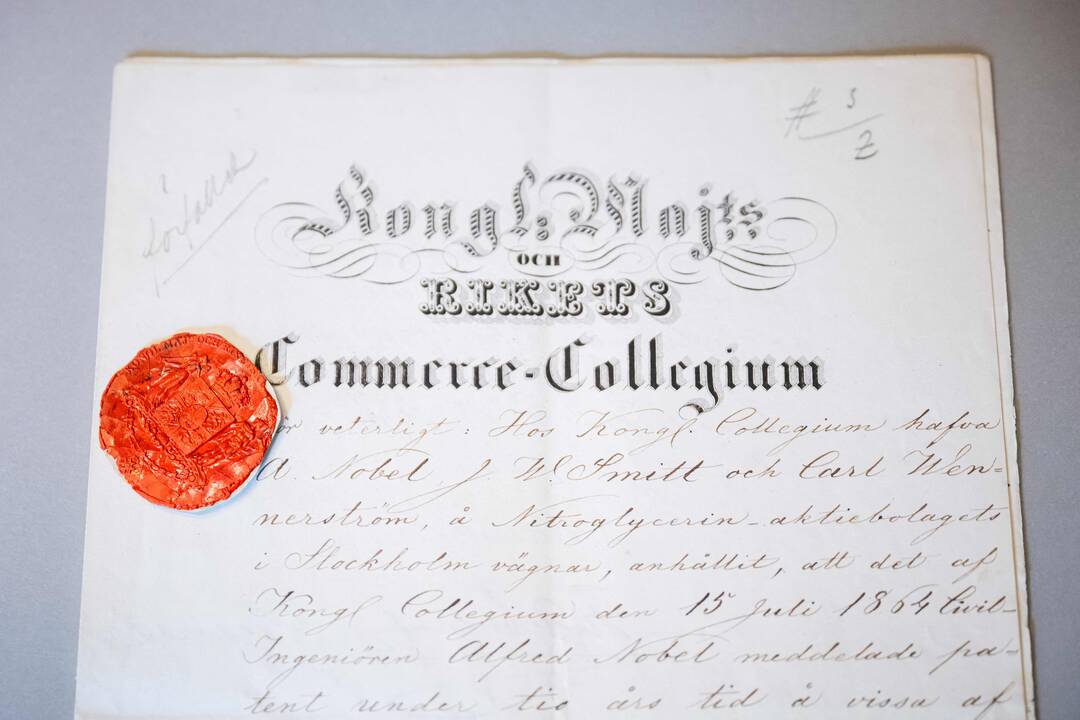 # s
2
förfallet
Kongl: Majts
OCH
RIKETS
Commerce-Collegium
Gör veterligt: Hos Kongl. Collegium hafva
A. Nobel, J. W. Smitt och Carl Wen=
nerström, å Nitroglycerin-aktiebolagets
i Stockholm vägnar, anhållit, att det af
Kongl Collegium den 15 Juli 1864 Civil-
Ingeniören Alfred Nobel meddelade pa-
tent under tio års tid å vissa af